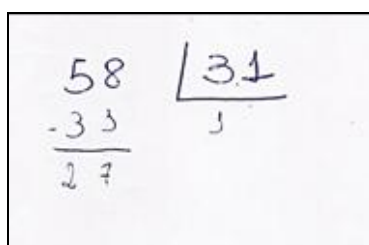 58 31
-31 1
27